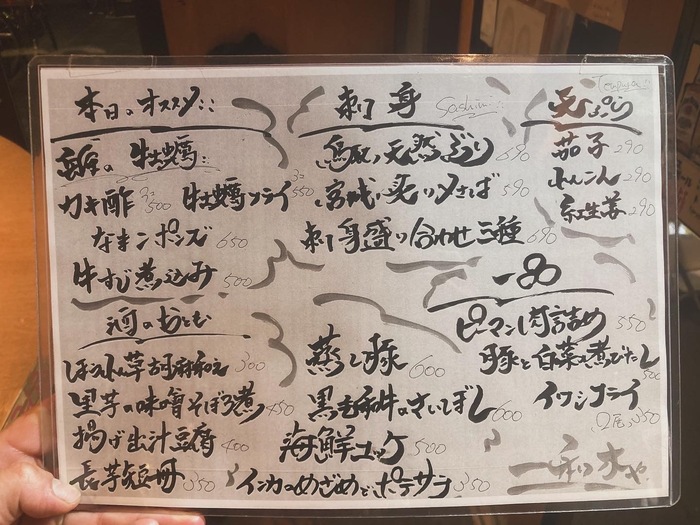 本日のオススメ
の 牡蠣
カキ酢 3コ 500
牡蠣フライ 3コ 550
なまこポンズ 650
牛すじ煮込み 500
刺身 Sashimi
鳥取 天然ぶり 690
宮城 炙り〆さば 590
刺身盛り合わせ三種 690
天ぷら Tempura
茄子 290
れんこん 290
紅生姜 290
酒のおとも
ほうれん草胡麻和え 300
里芋の味噌そぼろ煮 450
揚げ出汁豆腐 400
長芋短冊 350
一品
ピーマン肉詰め 550
蒸し豚 600
豚と白菜の煮びたし 500
黒毛和牛のさいぼし 600
イワシフライ 350
海鮮ユッケ 500
インカのめざめとポテサラ 350